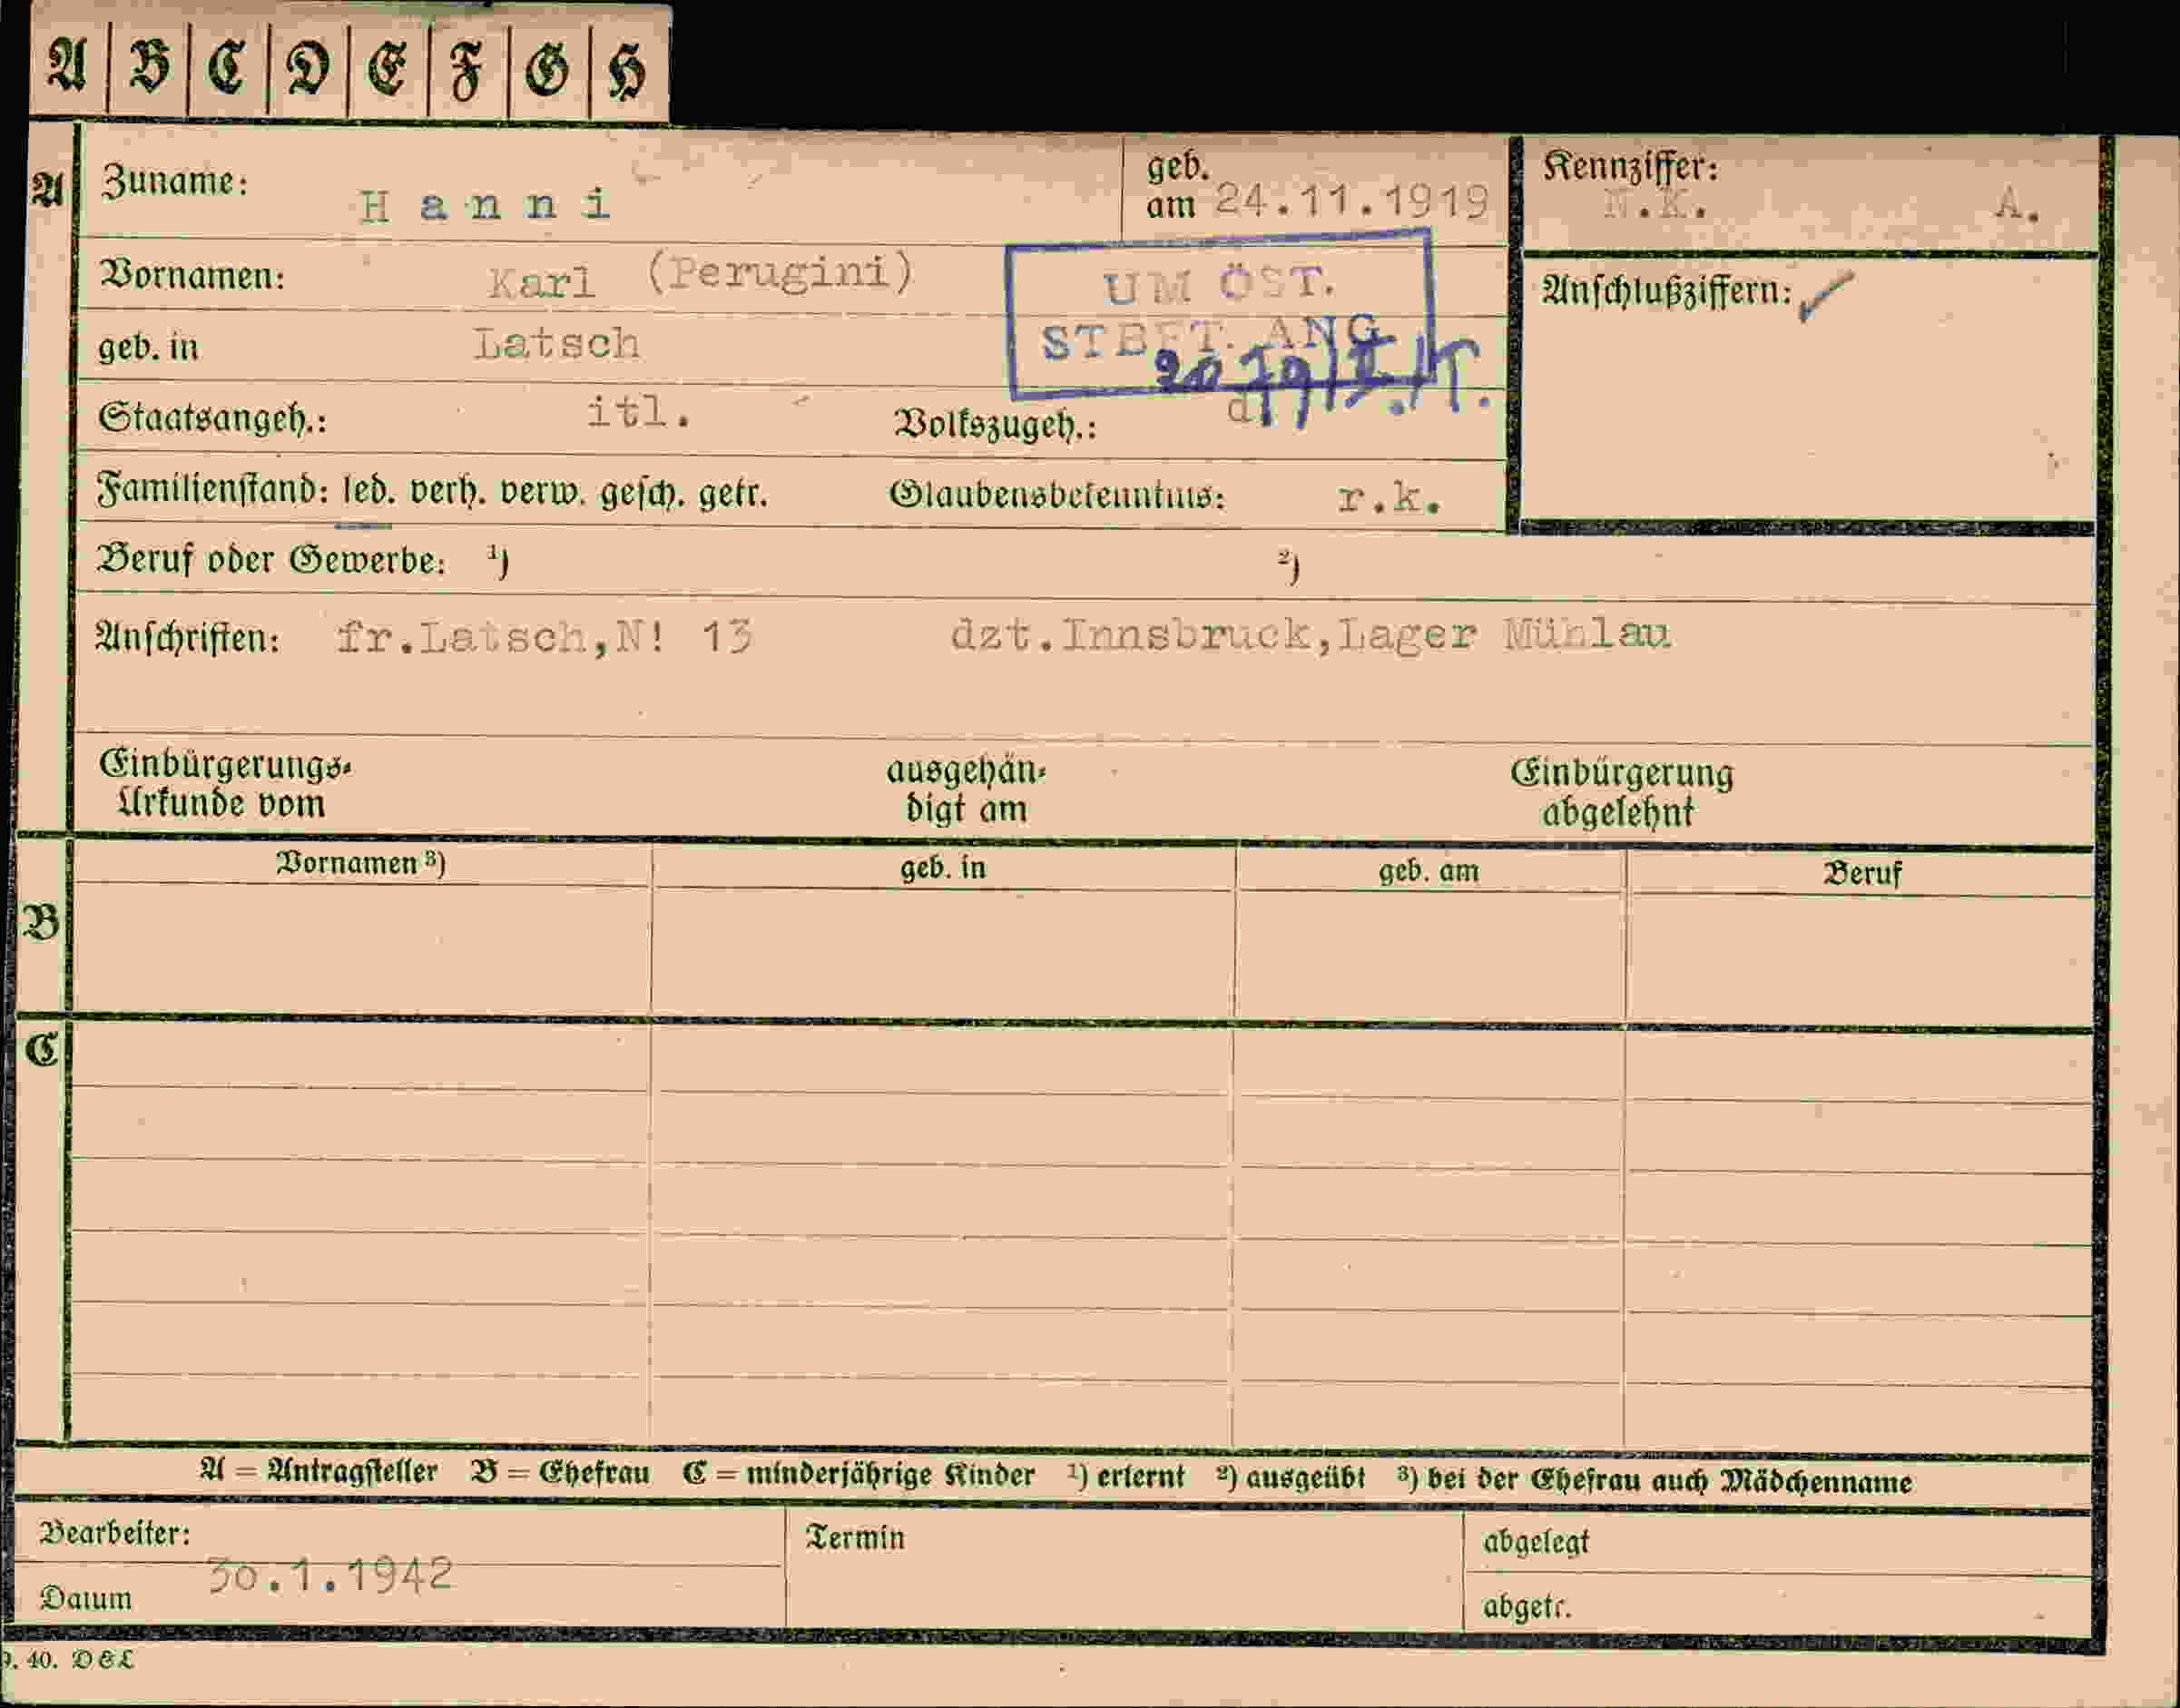 A B C D E F G H
A Zuname: Hanni geb. am 24.11.1919 Kennziffer: N.K. A.
Vornamen: Karl (Perugini) UM ÖST. Anschlußziffern:
geb. in Latsch STBFT. ANG.
Staatsangeh.: itl. Volkszugeh.: d
Familienstand: led. verh. verw. gesch. getr. Glaubensbekenntnis: r.k.
Beruf oder Gewerbe: ¹) ²)
Anschriften: fr.Latsch,N! 13 dzt.Innsbruck,Lager Mühlau
Einbürgerungs- ausgehän- Einbürgerung
Urkunde vom digt am abgelehnt
Vornamen ³) geb. in geb. am Beruf
B
C
A = Antragsteller B = Ehefrau C = minderjährige Kinder ¹) erlernt ²) ausgeübt ³) bei der Ehefrau auch Mädchenname
Bearbeiter: Termin abgelegt
Datum 30.1.1942 abgetr.
9. 40. D&L